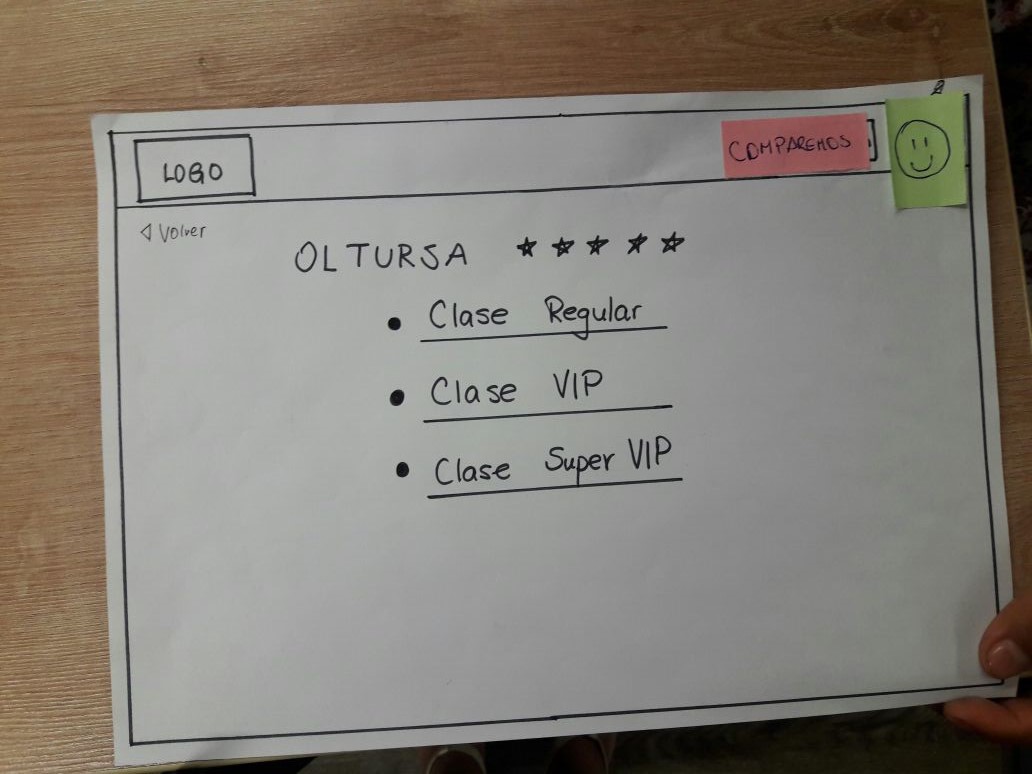 LOGO
COMPAREMOS
Volver
OLTURSA
Clase Regular
Clase VIP
Clase Super VIP